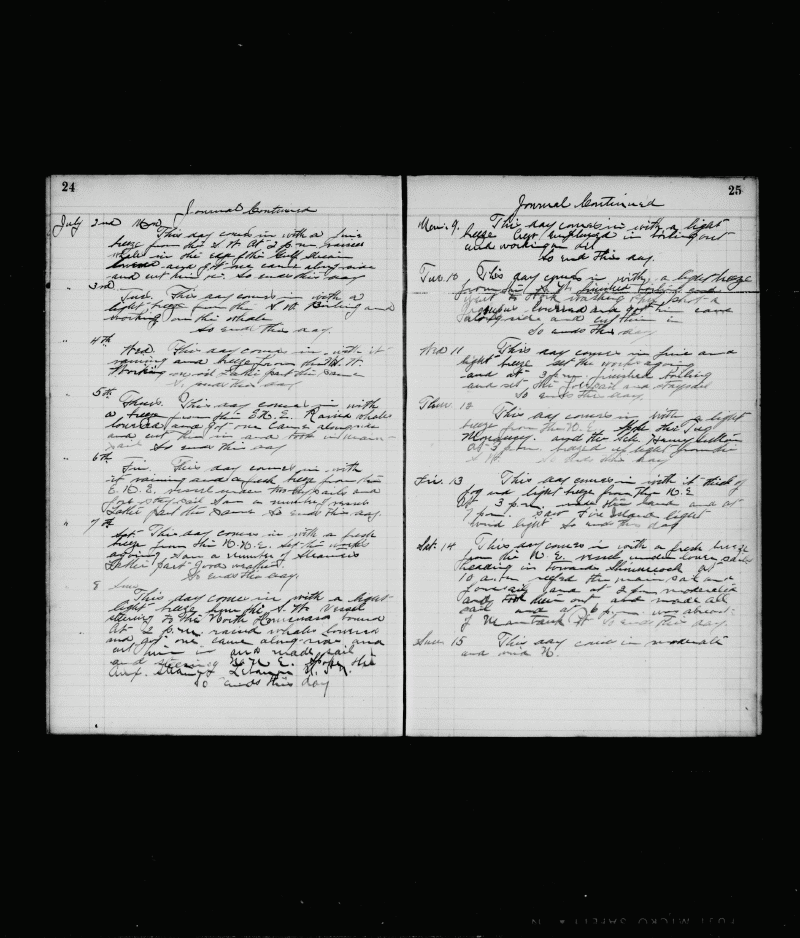 24
Journal Continued
July 2nd Mon
This day comes in with a fine
breeze from the S.W. At 2 p.m. raised
whales in the edge of the Gulf Stream
lowered and got one came alongside
and cut him in. So ends this day
3rd
Tues. This day comes in with a
light breeze from the S.W. Boiling and
working on the whale
So ends this day.
4th
Wed. This day comes in with it
raining and breeze from the S.W.
Working on oil Latter part the same
So ends this day
5th
Thurs. This day comes in with
a breeze from the E.N.E. Raised whales
lowered and got one came alongside
and cut him in and took in main
sail So ends this day
6th
Fri. This day comes in with
it raining and a fresh breeze from the
E.N.E. vessel under two sails and
fore staysail Saw a number
Latter part the same. So ends this day.
7th
Sat. This day comes in with a fresh
breeze from the N.N.E.
Saw a number of Steamers
Latter part good weather.
So ends this day.
8 Sun.
This day comes in with a light
light breeze from the S.W. Vessel
steering to the North Homeward bound
At 2 p.m. raised whales lowered
and got one came alongside and
cut him in and made sail
and steering N.N.E. Spoke the
Am. Steamer
So ends this day
25
Journal Continued
Mon. 9. This day comes in with a light
breeze Crew employed in boiling out
and working on oil
So ends this day.
Tue. 10 This day comes in with a light breeze
from the S.W. finished boiling and
went to
lowered and got him came
alongside and cut him in
So ends this day
Wed 11 This day comes in fine and
light breeze set the works again
and at 3 p.m. finished boiling
and set the foresail and staysail
So ends this day.
Thurs. 12 This day comes in with a light
breeze from the N.E. Spoke the Tug
and the Sch. Henry
At 3 p.m. light from the
S.W. So ends this day
Fri. 13 This day comes in with it thick of
fog and light breeze from the N.E
At 3 p.m. made the land and at
9 p.m. saw Fire Island light
wind light So ends this day
Sat. 14 This day comes in with a fresh breeze
from the N.E. vessel under lower sails
heading in towards Shinnecock at
10 a.m. reefed the main sail and
foresail and at 2 p.m. moderated
and took them out and made all
sail and at 6 p.m. was abreast
of Montauk Pt So ends this day.
Sun. 15 This day comes in moderate
and wind N.